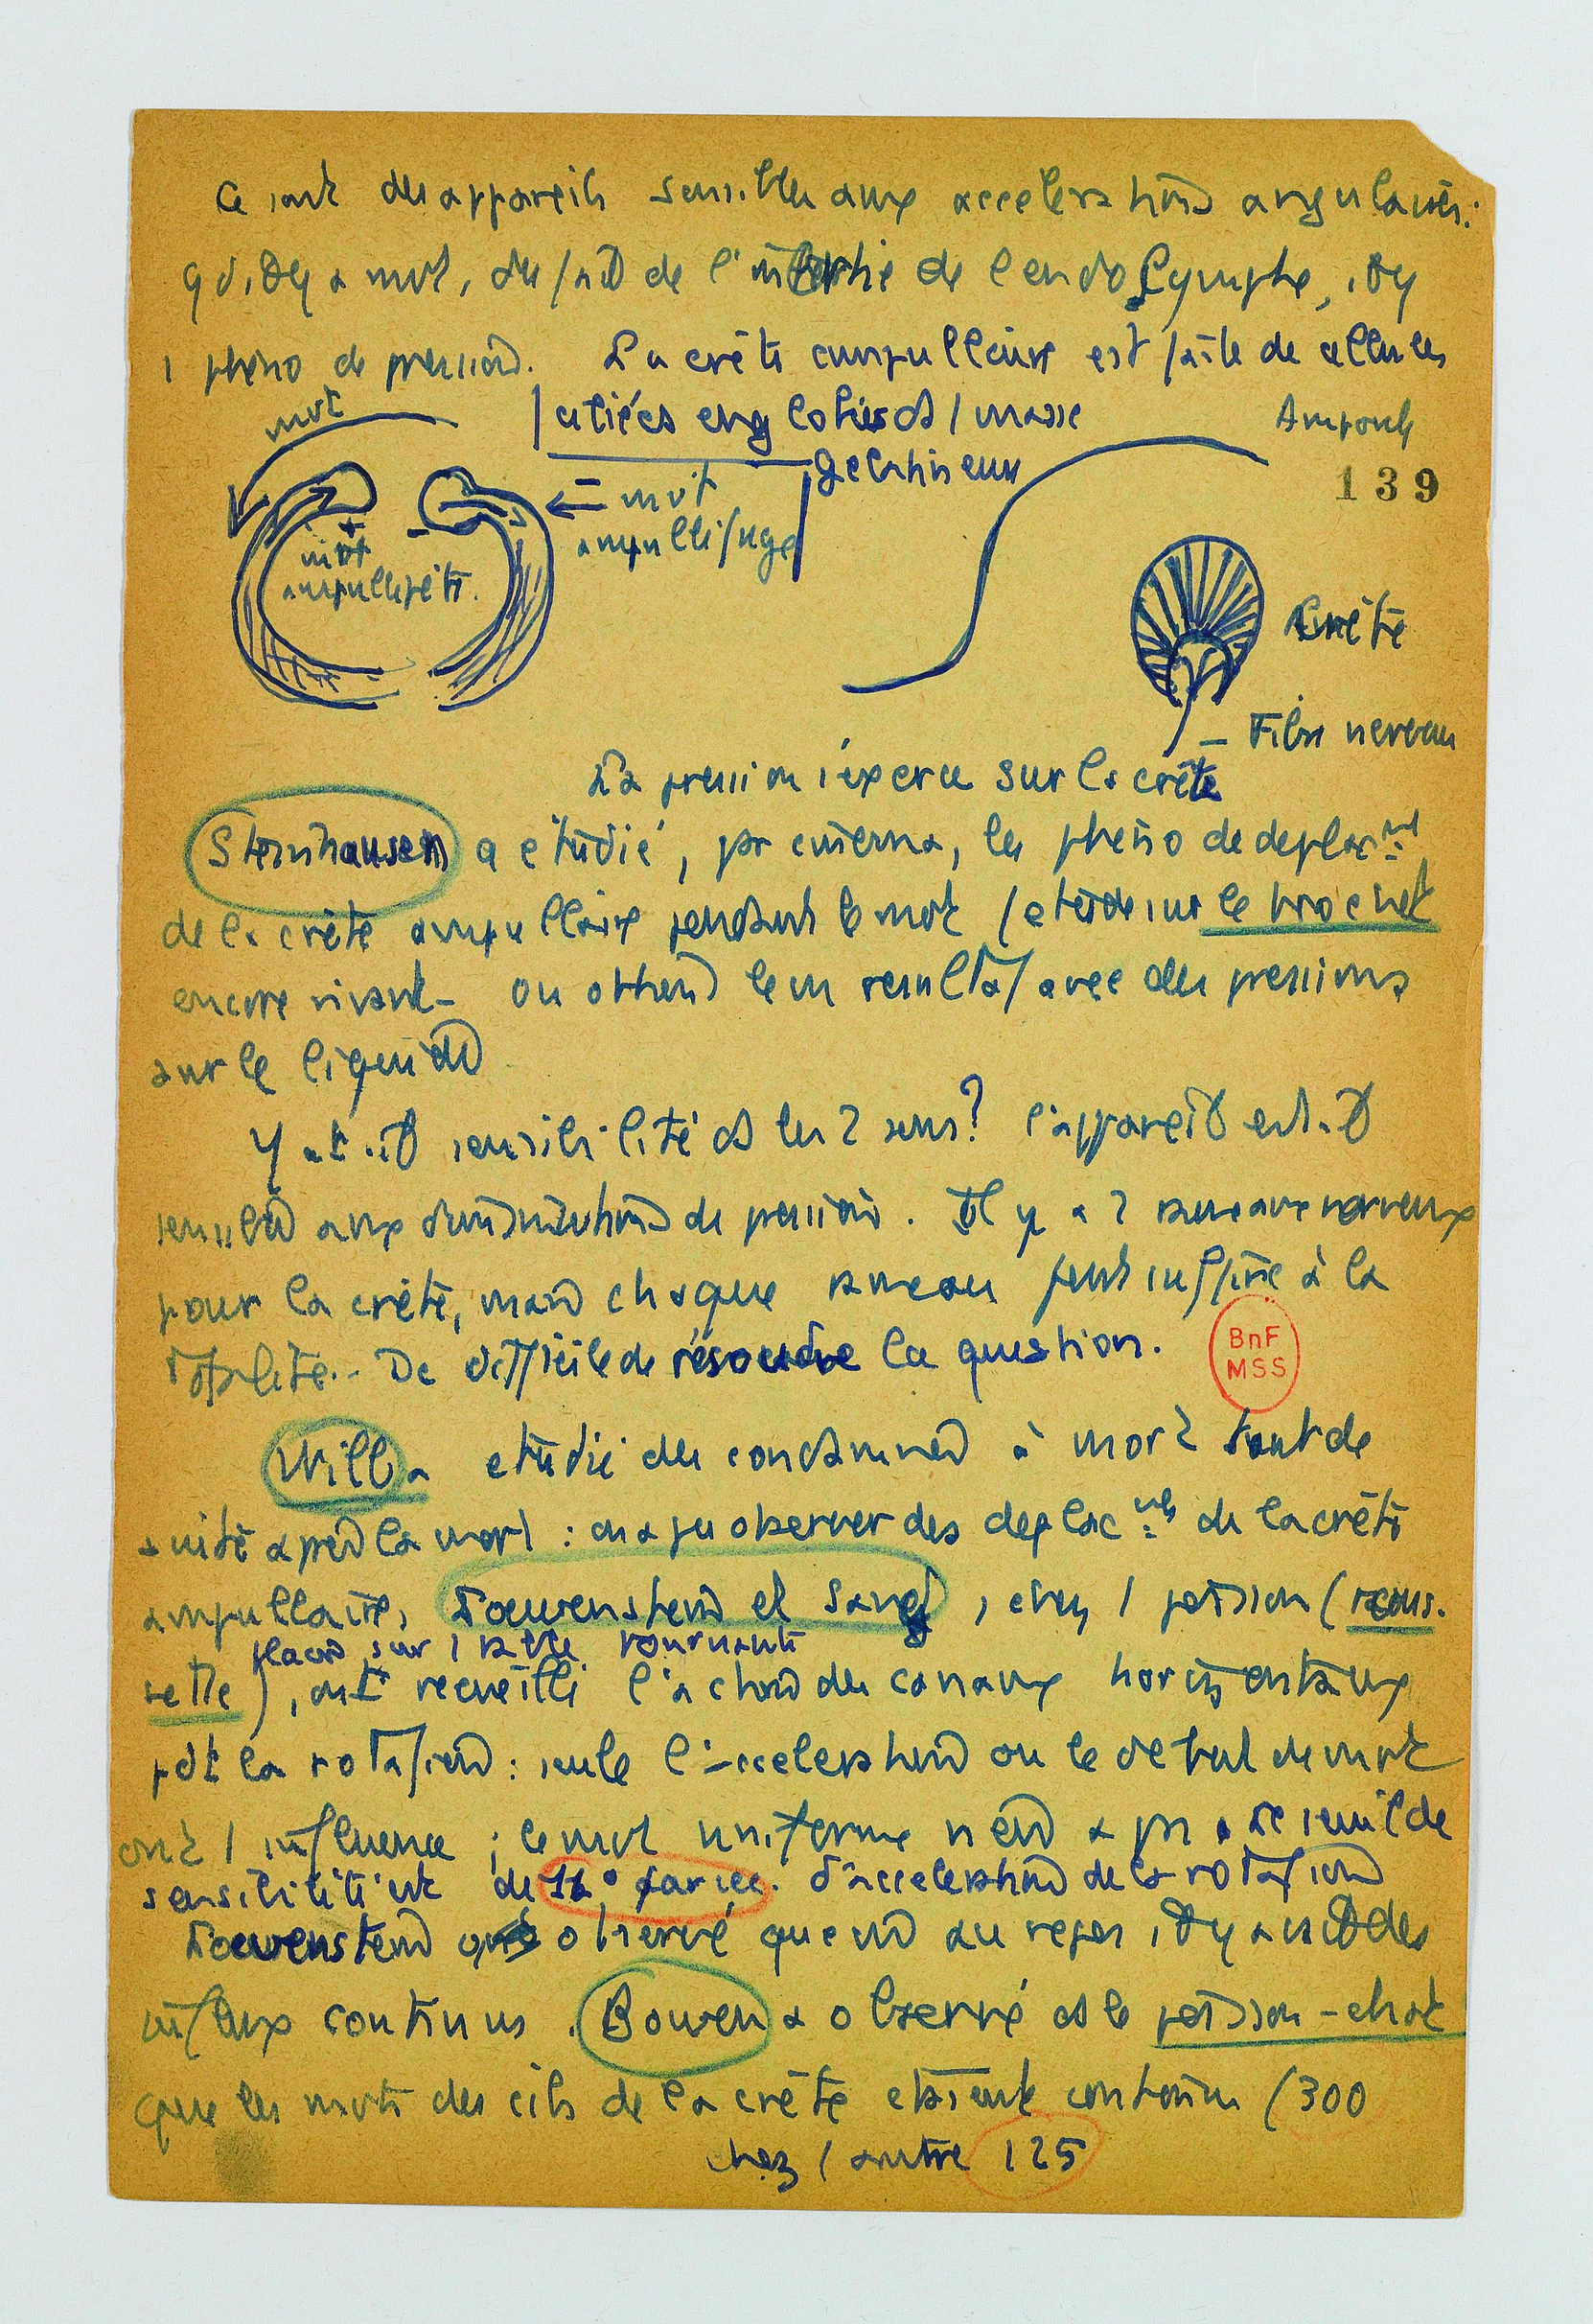 Ce sont des appareils sensibles aux accelerations angulaires:
qd il y a mvt, du fait de l'inertie de l'endolymphe, il y
1 pheno de pression. La crête ampullaire est faite de cellules
mvt
ciliées englobées ds 1 masse
gelatineuse
Ampoule
139
← = mvt
ampullifuge
+ -
mvt
ampullipète.
Crête
Fibre nerveu
La pression s'exerce sur la crête
Steinhausen a étudié, pr cinema, les pheno de deplacnt
de la crête ampullaire pendant le mvt (etude sur le brochet
encore vivant - on obtient le m resultat avec des pressions
sur le liquide
Y a-t-il sensibilité ds les 2 sens? l'appareil est-il
sensible aux diminutions de pression. Il y a 2 rameaux nerveux
pour la crête, mais chaque rameau peut suffire à la
totalité.. De difficile de résoudre la question.
BnF
MSS
a etudié des condamnes à mort tout de
suite apres la mort : on a pu observer des deplacnts de la crête
ampullaire, Loewenstein et Sand, chez 1 poisson (rous-
placés sur 1 table tournante
sette), ont recueilli l'action des canaux horizontaux
pdt la rotation: seule l'acceleration ou le debut du mvt
ont 1 influence ; le mvt uniforme n'en a pas. Le seuil de
sensibilité est de par sec. d'acceleration de la rotation
Loewenstein observé que m au repos, il y a des
influx continus. Bowen a observé ds le poisson-chat
que les mvts des cils de la crête etaient continus (300
chez 1 autre 125